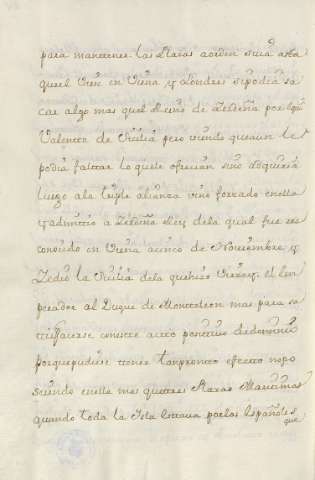 para mantener las Plazas
que el Rey en Viena y Londres se podia sa
car algo mas que el Reino de Zerdeña por
Valentta de Sicilia pero viendo que aun le
podia faltar lo que le ofrecian sino adqueria
luego ala triple alianza vino forzado en ella
y admittio a Zerdeña Rey dela qual fue rec
conocido en Viena acinco de Noviembre y
Zedio la Sicilia dela que hizo Virrey el Em
perador al Duque de Montteleon mas para sa
ttisfacerse con este actto
porque pudiese tener tan prontto efectto no po
seiendo en ella mas que tres Plazas Marittimas
quando toda la Isla estava por los Españoles
que